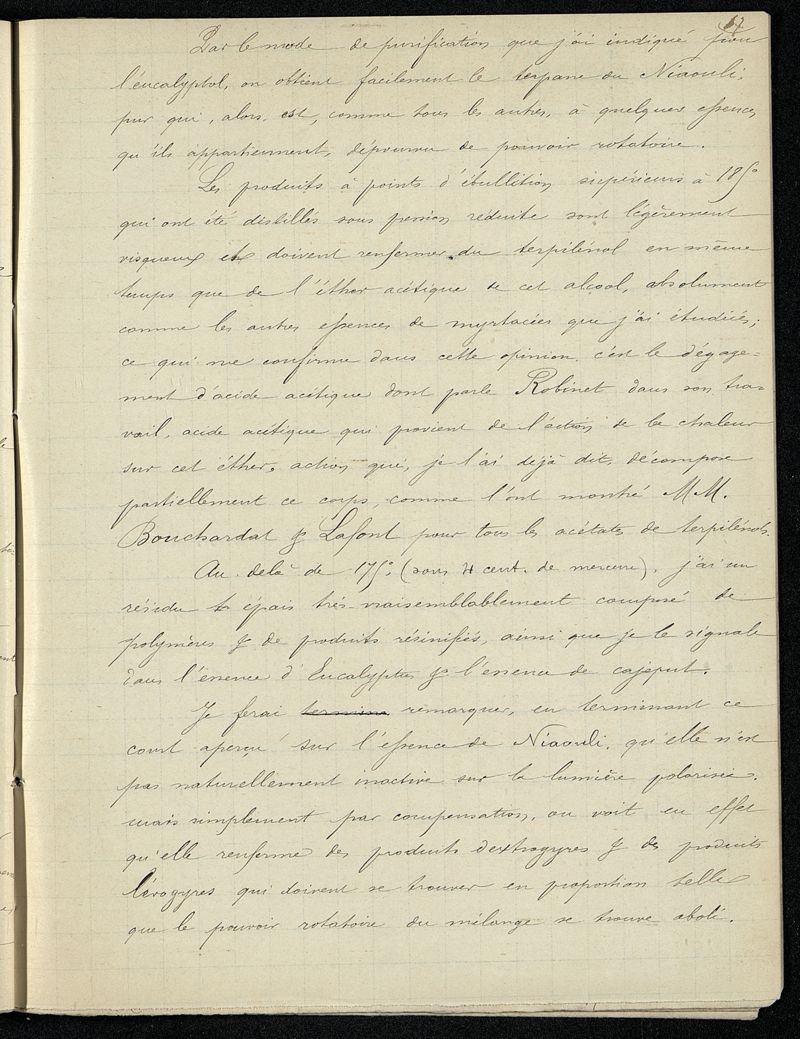 67
Par le mode de purification que j'ai indiqué pour
l'eucalyptol, on obtient facilement le terpane du Niaouli,
pur qui, alors, est, comme tous les autres, à quelques essences
qu'ils appartiennent, dépourvu de pouvoir rotatoire.
Les produits à points d'ébullition supérieurs à 185°
qui ont été distillés sous pression réduite sont légèrement
visqueux et doivent renfermer du terpilénol en même
temps que de l'éther acétique de cet alcool, absolument
comme les autres essences de myrtacées que j'ai étudiées;
ce qui me confirme dans cette opinion c'est le dégage-
ment d'acide acétique dont parle Robinet dans son tra-
vail, acide acétique qui provient de l'action de la chaleur
sur cet éther, action qui, je l'ai déjà dit, décompose
partiellement ce corps, comme l'ont montré MM.
Bouchardat & Lafont pour tous les acétates de terpilénols.
Au delà de 175°, (sous 4 cent. de mercure), j'ai un
résidu épais très vraisemblablement composé de
polymères & de produits résinifiés, ainsi que je le signale
dans l'essence d'Eucalyptus & l'essence de cajeput.
Je ferai remarquer, en terminant ce
court aperçu sur l'essence de Niaouli, qu'elle n'est
pas naturellement inactive sur la lumière polarisée,
mais simplement par compensation, on voit en effet
qu'elle renferme des produits dextrogyres & des produits
lévogyres qui doivent se trouver en proportion telle
que le pouvoir rotatoire du mélange se trouve aboli.